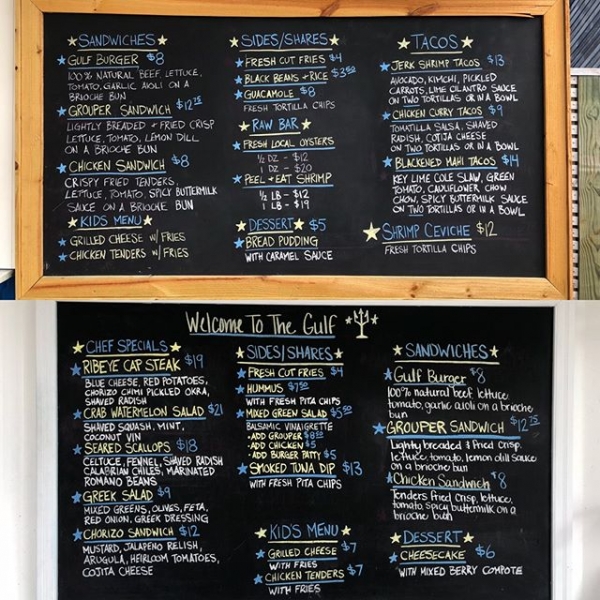 SANDWICHES
GULF BURGER $8
100% NATURAL BEEF, LETTUCE,
TOMATO, GARLIC AIOLI ON A
BRIOCHE BUN
GROUPER SANDWICH $12.75
LIGHTLY BREADED + FRIED CRISP
LETTUCE, TOMATO, LEMON DILL
ON A BRIOCHE BUN
CHICKEN SANDWICH $8
CRISPY FRIED TENDERS,
LETTUCE, TOMATO, SPICY BUTTERMILK
SAUCE ON A BRIOCHE BUN
KIDS MENU
GRILLED CHEESE W/ FRIES
CHICKEN TENDERS W/ FRIES
SIDES/SHARES
FRESH CUT FRIES $4
BLACK BEANS + RICE $3.50
GUACAMOLE $8
FRESH TORTILLA CHIPS
RAW BAR
FRESH LOCAL OYSTERS
1/2 DZ - $12
1 DZ - $20
PEEL + EAT SHRIMP
1/2 LB - $12
1 LB - $19
DESSERT $5
BREAD PUDDING
WITH CARAMEL SAUCE
TACOS
JERK SHRIMP TACOS $13
AVOCADO, KIMCHI, PICKLED
CARROTS, LIME CILANTRO SAUCE
ON TWO TORTILLAS OR IN A BOWL
CHICKEN CURRY TACOS $9
TOMATILLA SALSA, SHAVED
RADISH, COTIJA CHEESE
ON TWO TORTILLAS OR IN A BOWL
BLACKENED MAHI TACOS $14
KEY LIME COLE SLAW, GREEN
TOMATO, CAULIFLOWER CHOW
CHOW, SPICY BUTTERMILK SAUCE
ON TWO TORTILLAS OR IN A BOWL
SHRIMP CEVICHE $12
FRESH TORTILLA CHIPS
Welcome To The Gulf
CHEF SPECIALS
RIBEYE CAP STEAK $19
BLUE CHEESE, RED POTATOES,
CHORIZO CHIMI PICKLED OKRA,
SHAVED RADISH
CRAB WATERMELON SALAD $21
SHAVED SQUASH, MINT,
COCONUT VIN
SEARED SCALLOPS $18
CELTUCE, FENNEL, SHAVED RADISH
CALABRIAN CHILES, MARINATED
ROMANO BEANS
GREEK SALAD $9
MIXED GREENS, OLIVES, FETA,
RED ONION, GREEK DRESSING
CHORIZO SANDWICH $12
MUSTARD, JALAPENO RELISH,
ARUGULA, HEIRLOOM TOMATOES,
COJITA CHEESE
SIDES/SHARES
FRESH CUT FRIES $4
HUMMUS $7.50
WITH FRESH PITA CHIPS
MIXED GREEN SALAD $5.50
BALSAMIC VINAIGRETTE
-ADD GROUPER $8.50
-ADD CHICKEN $5
-ADD BURGER PATTY $5
SMOKED TUNA DIP $13
WITH FRESH PITA CHIPS
KID'S MENU
GRILLED CHEESE $7
WITH FRIES
CHICKEN TENDERS $7
WITH FRIES
SANDWICHES
Gulf Burger $8
100% natural beef lettuce
tomato, garlic aioli on a brioche
bun
GROUPER SANDWICH $12.75
Lightly breaded & fried crisp
lettuce, tomato, lemon dill sauce
on a brioche bun
Chicken Sandwich $8
Tenders fried crisp, lettuce,
tomato, spicy buttermilk on a
brioche bun
DESSERT
CHEESECAKE $6
WITH MIXED BERRY COMPOTE